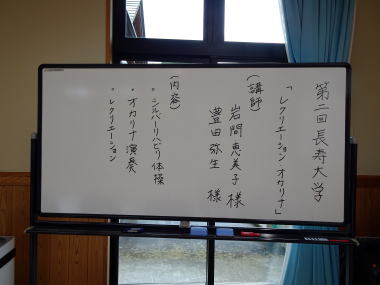 第二回長寿大学
「レクリエーション オカリナ」
(講師)
岩間恵美子様
豊田弥生 様
(内容)
・シルバーリハビリ体操
・オカリナ演奏
・レクリエーション